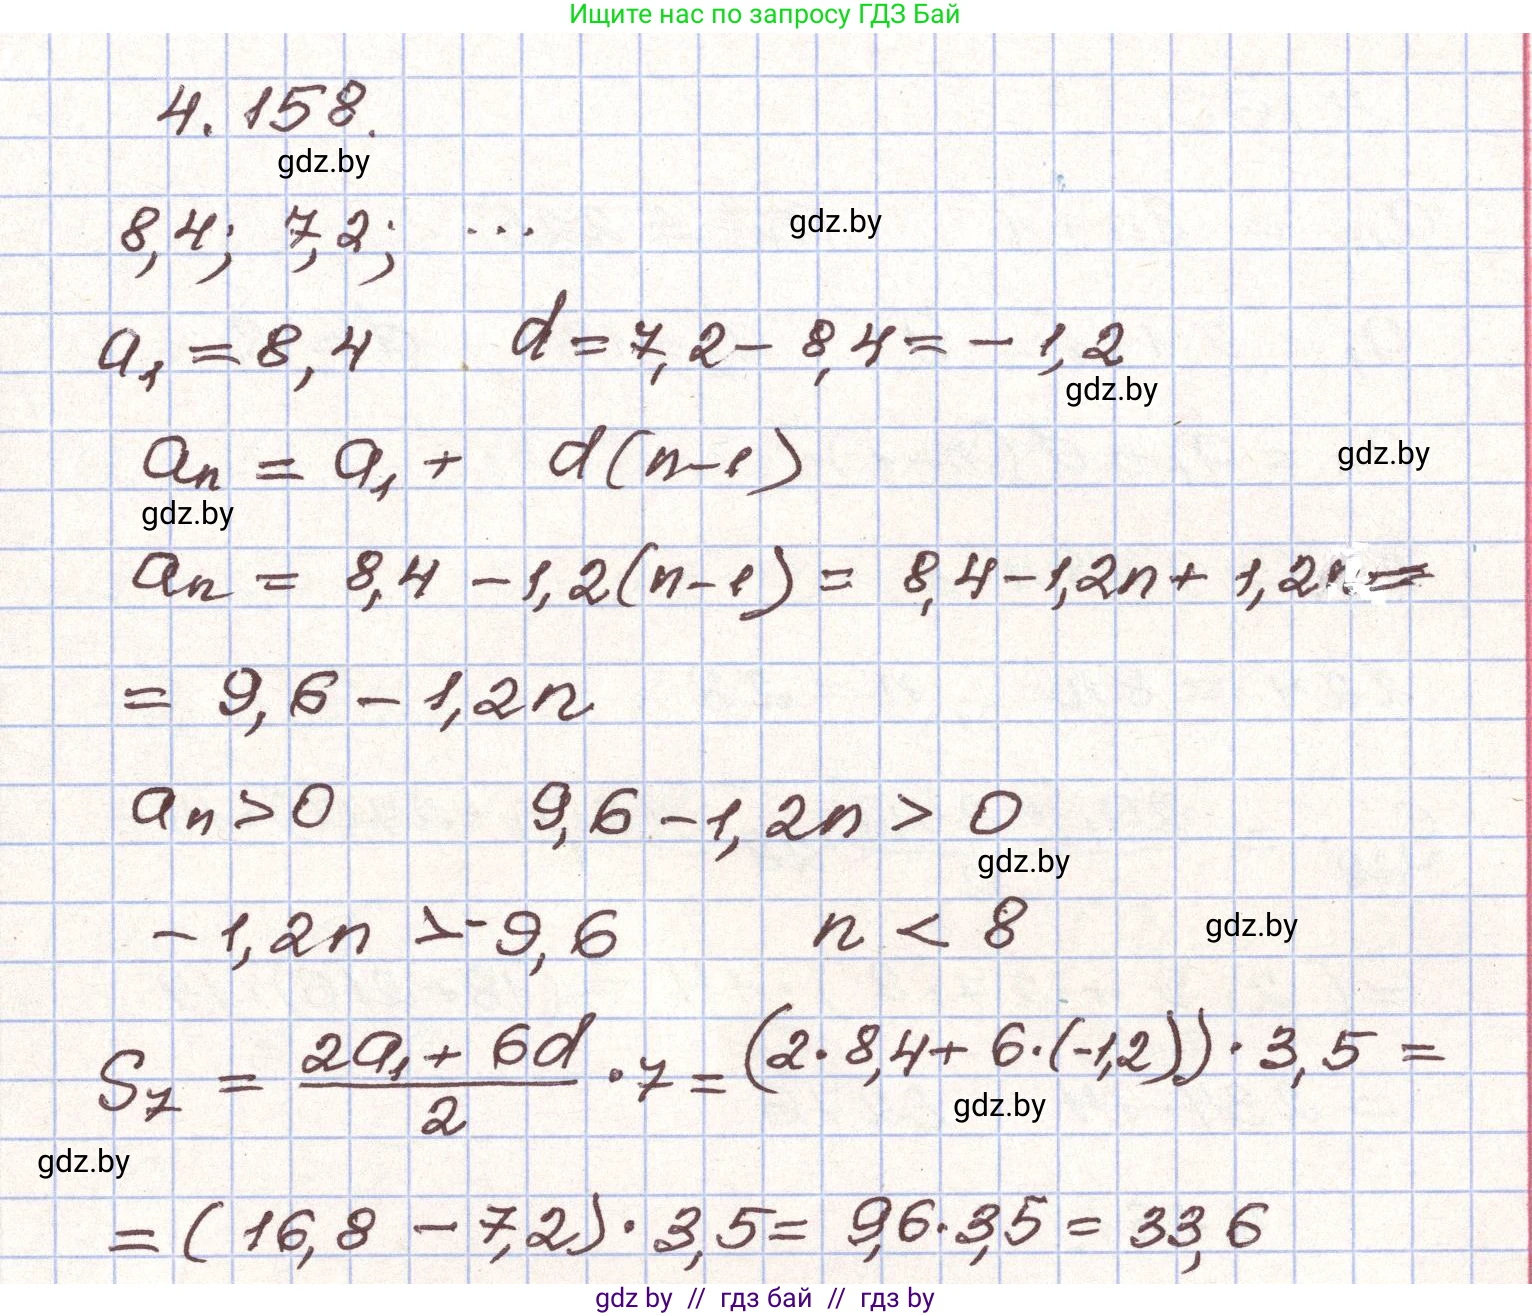 Ищите нас по запросу ГДЗ Бай
4.158.
gdz.by
8,4; 7,2; ...
gdz.by
a₁ = 8,4 d = 7,2 - 8,4 = - 1,2
gdz.by
aₙ = a₁ + d(n-1)
gdz.by
gdz.by
aₙ = 8,4 - 1,2(n-1) = 8,4 - 1,2n + 1,2 =
= 9,6 - 1,2n
aₙ > 0 9,6 - 1,2n > 0
gdz.by
- 1,2n > -9,6 n < 8
gdz.by
S₇ = (2a₁ + 6d)/2 · 7 = (2·8,4 + 6·(-1,2)) · 3,5 =
gdz.by
gdz.by
= (16,8 - 7,2) · 3,5 = 9,6·3,5 = 33,6
gdz by // гдз бай // гдз by